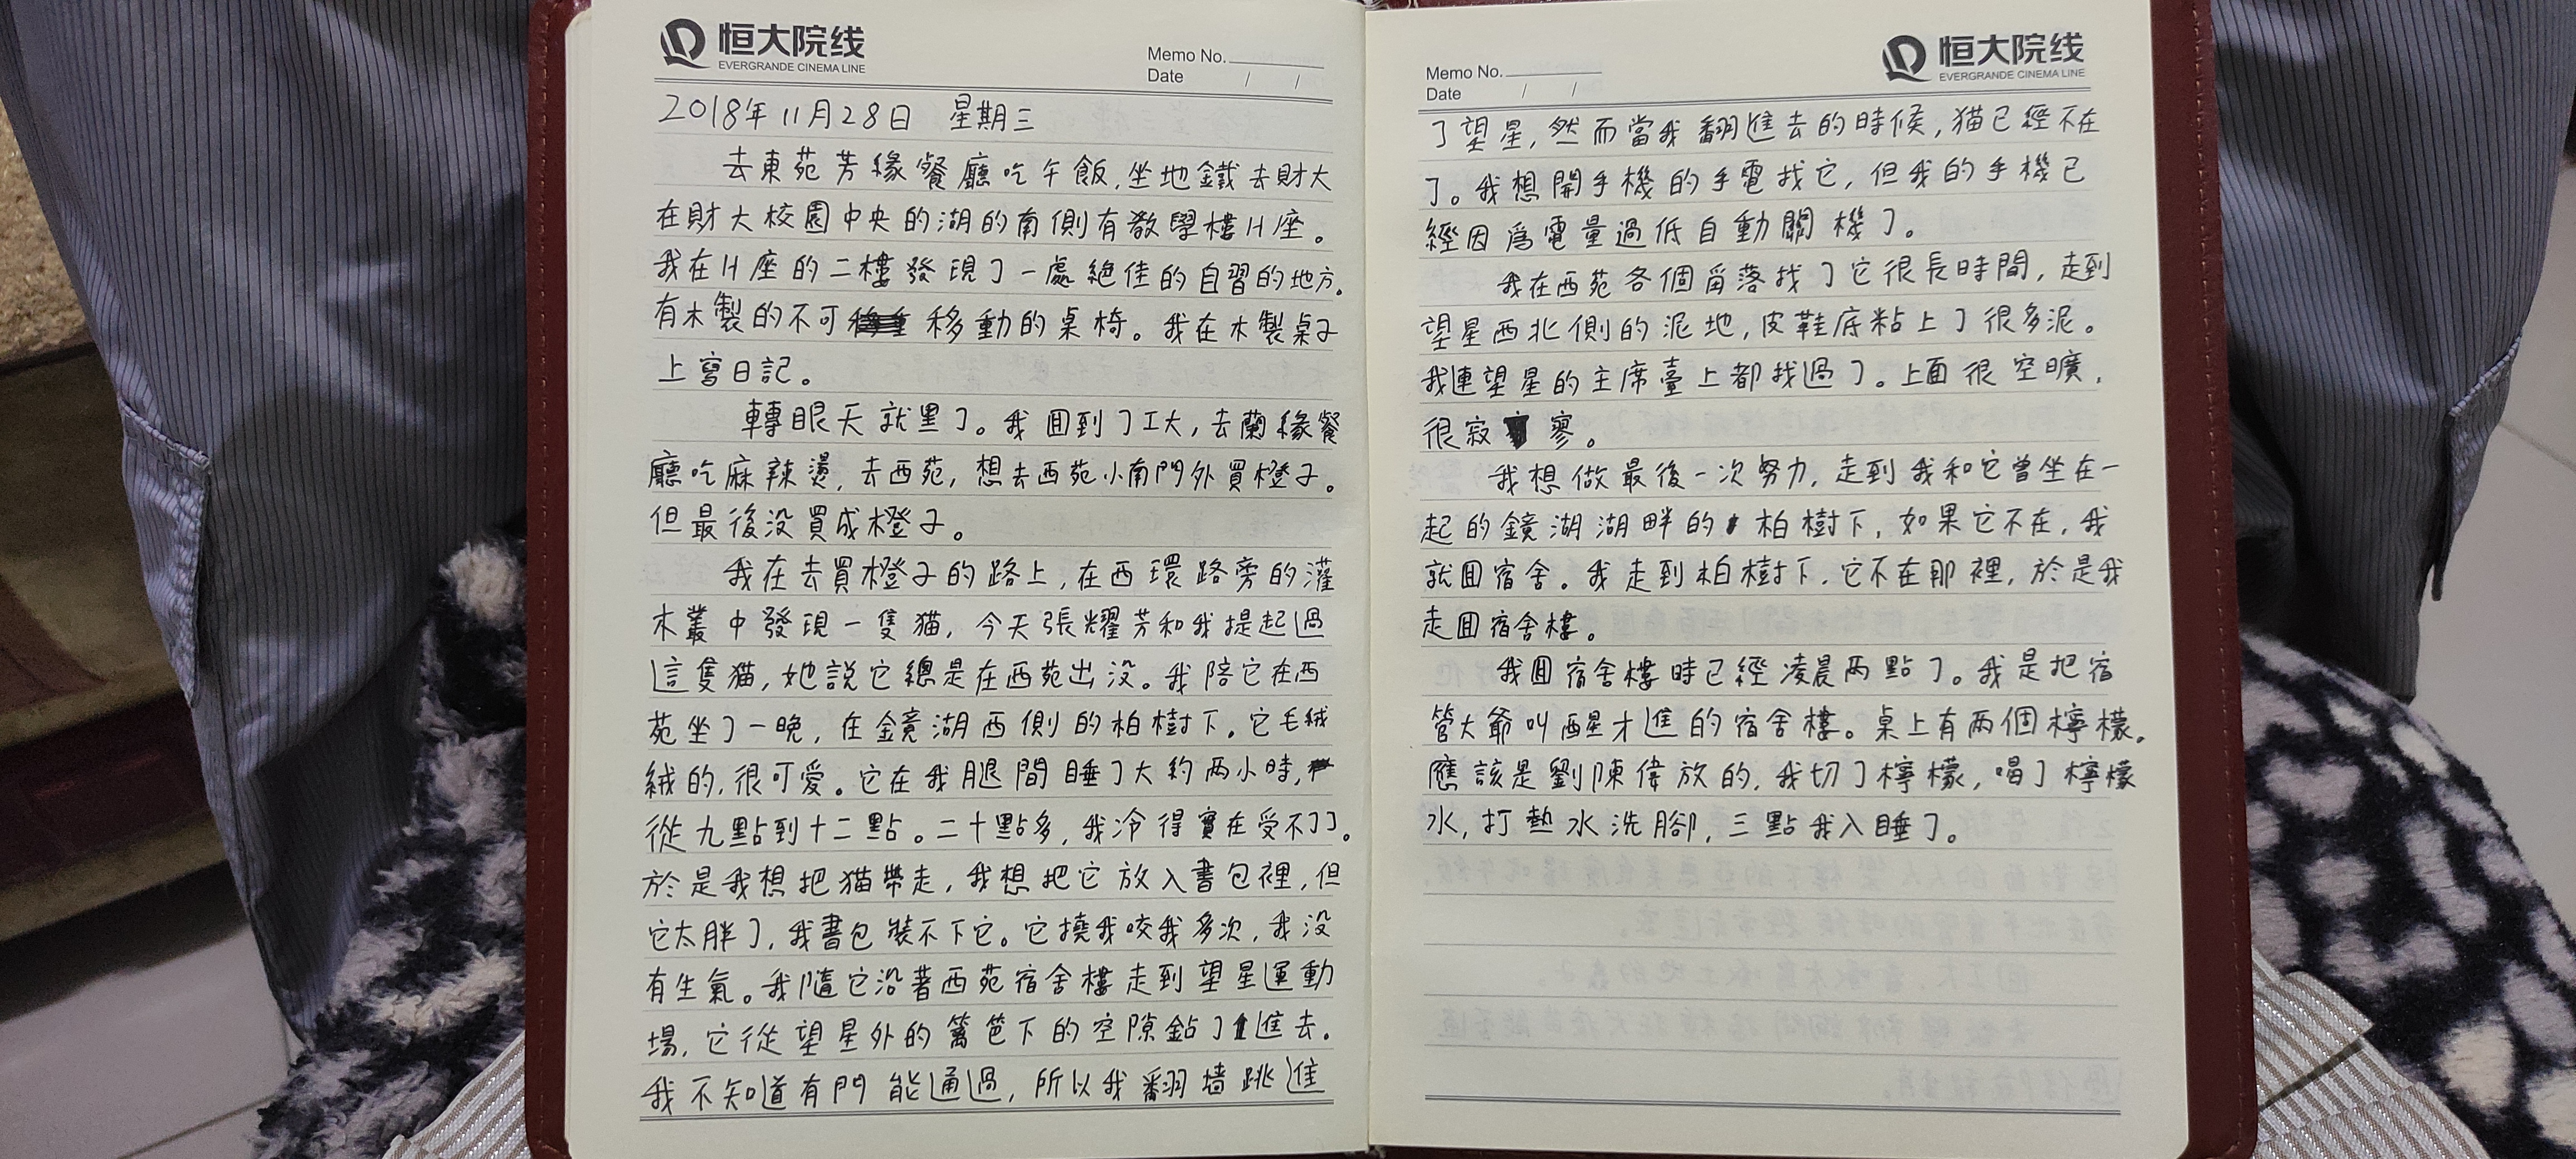 恒大院线
EVERGRANDE CINEMA LINE
Memo No.
Date / /
2018年11月28日 星期三
去東苑芳緣餐廳吃午飯,坐地鐵去財大
在財大校園中央的湖的南側有教學樓H座。
我在H座的二樓發現了一處絕佳的自習的地方.
有木製的不可移動的桌椅。我在木製桌子
上寫日記。
轉眼天就黑了。我回到了工大,去蘭緣餐
廳吃麻辣燙,去西苑,想去西苑小南門外買橙子。
但最後没買成橙子。
我在去買橙子的路上,在西環路旁的灌
木叢中發現一隻猫,今天張耀芳和我提起過
這隻猫,她說它總是在西苑出没。我陪它在西
苑坐了一晚,在鏡湖西側的柏樹下。它毛絨
絨的,很可愛。它在我腿間睡了大約两小時,
從九點到十二點。二十點多,我冷得實在受不了了。
於是我想把猫帶走,我想把它放入書包裡,但
它太胖了,我書包裝不下它。它撓我咬我多次,我没
有生氣。我隨它沿著西苑宿舍樓走到望星運動
場,它從望星外的篱笆下的空隙鉆了進去.
我不知道有門能通過,所以我翻墙跳進
恒大院线
EVERGRANDE CINEMA LINE
Memo No.
Date / /
了望星,然而當我翻進去的時候,猫已經不在
了。我想開手機的手電找它,但我的手機已
經因爲電量過低自動關機了。
我在西苑各個角落找了它很長時間,走到
望星西北側的泥地,皮鞋底粘上了很多泥。
我連望星的主席臺上都找過了。上面很空曠,
很寂寥。
我想做最後一次努力,走到我和它曾坐在一
起的鏡湖湖畔的柏樹下,如果它不在,我
就回宿舍。我走到柏樹下,它不在那裡,於是我
走回宿舍樓。
我回宿舍樓時已經凌晨两點了。我是把宿
管大爺叫醒才進的宿舍樓。桌上有两個檸檬。
應該是劉陳偉放的,我切了檸檬,喝了檸檬
水,打熱水洗腳,三點我入睡了。